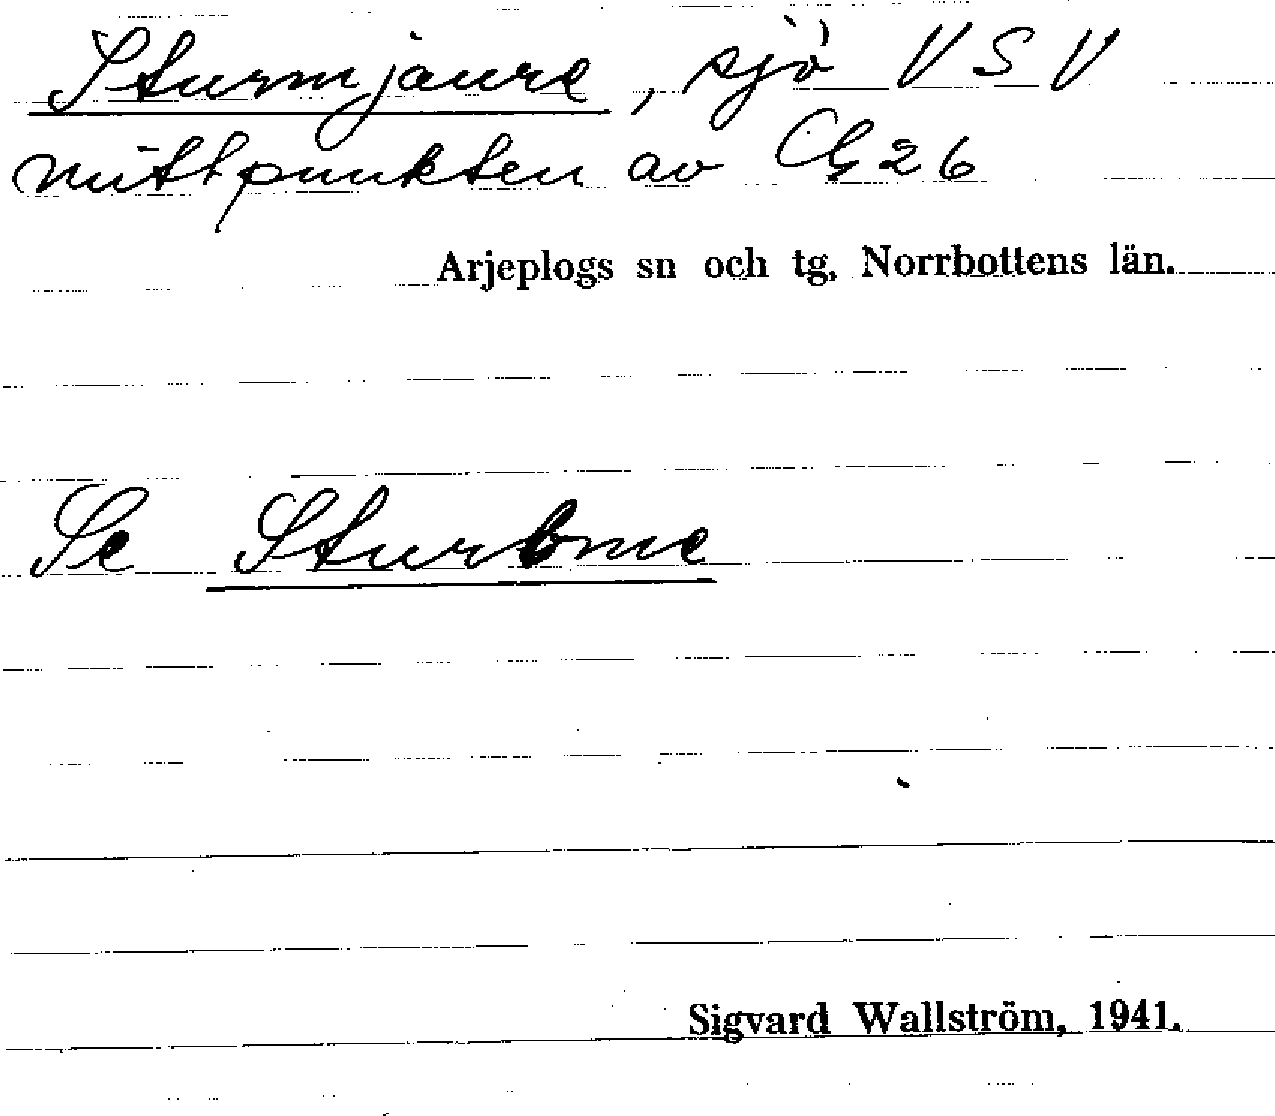 Sturmjaure, sjö VSV
mittpunkten av Cg 26
Arjeplogs sn och tg. Norrbottens län.
Se Sturbme
Sigvard Wallström, 1941.